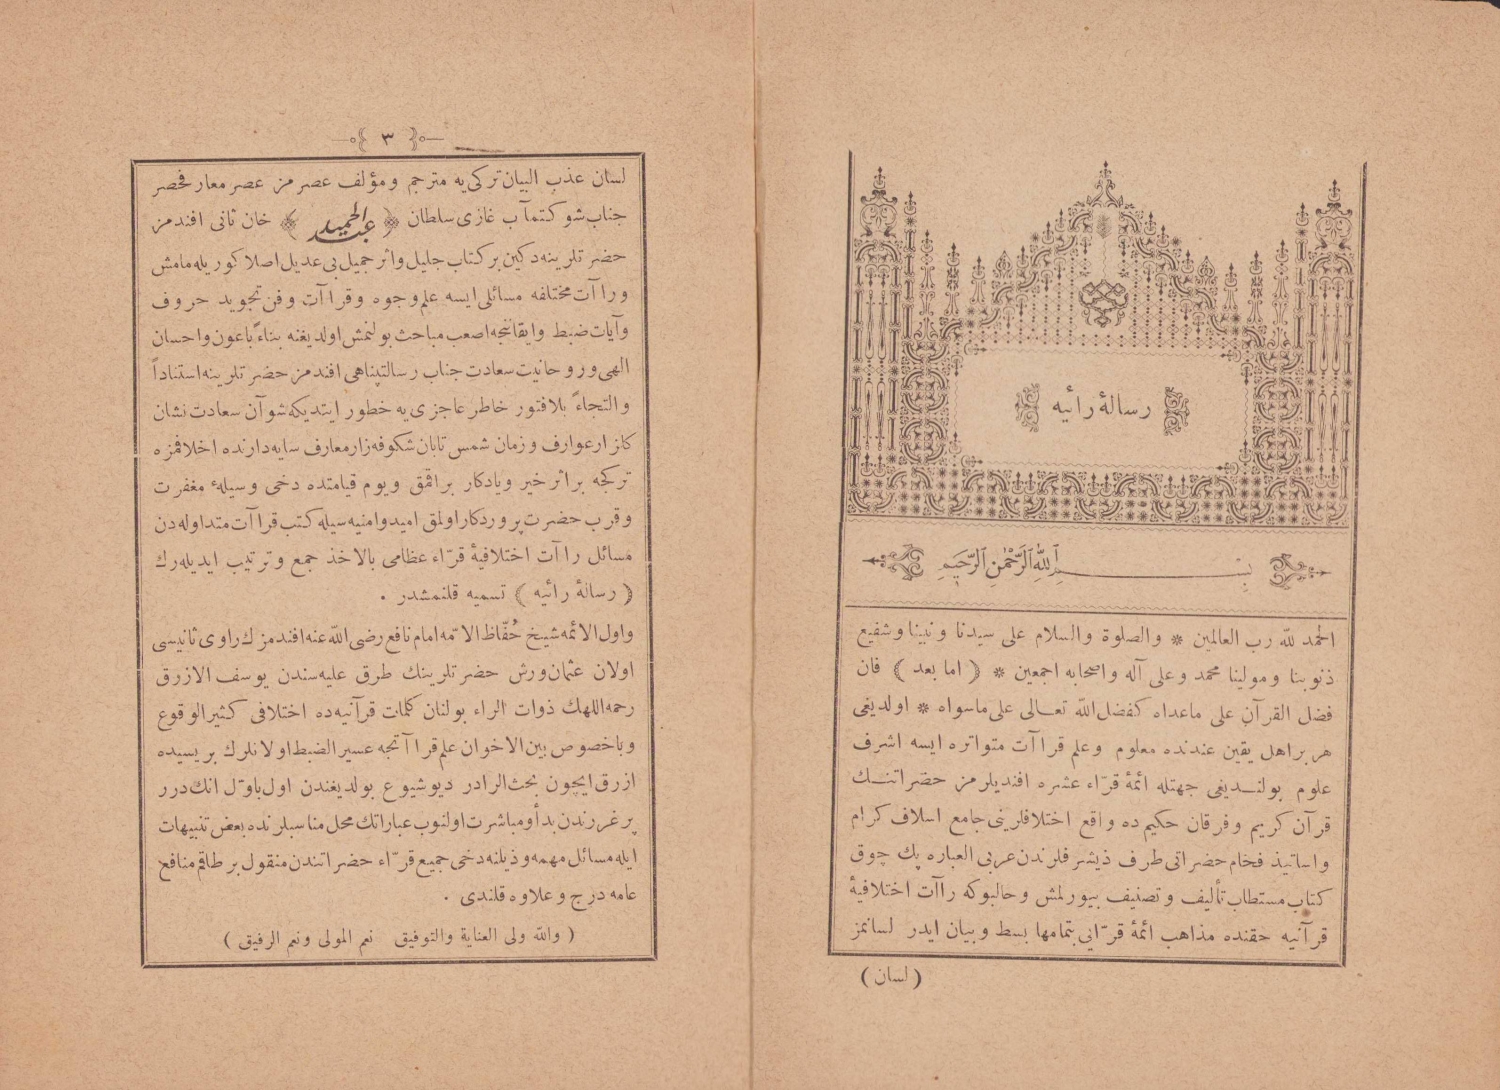 رسالهٔ رائیه
بسم اللّٰه الرّحمن الرّحیم
الحمد للّٰه رب العالمین * والصلوة والسلام علی سیدنا ونبینا وشفیع
ذنوبنا ومولینا محمد وعلی آله واصحابه اجمعین * ( اما بعد ) فان
فضل القرآن علی ماعداه کفضل اللّٰه تعـالی علی ماسواه * اولدیغی
هر بر اهل یقین عندنده معلوم وعلم قراآت متواتره ایسه اشرف
علوم بولنـدیغی جهتله ائمهٔ قرّاء عشره افندیلرمز حضراتنـك
قرآن کریم وفرقان حکیم ده واقع اختلافلرینی جامع اسلاف کرام
واساتیذ فخام حضراتی طرف ذیشرفلرندن عربی العباره پك چوق
کتاب مستطاب تألیف وتصنیف بیورلمش وحالبوکه راآت اختلافیهٔ
قرآنیه حقنده مذاهب ائمهٔ قرّایی بتمامها بسط وبیان ایدر لسانمز
( لسان )
٣
لسان عذب البیان ترکی یه مترجم ومؤلف عصرمز عصر معارفحصر
جناب شوکتمآب غازی سلطان ﴿ عبد الحمید ﴾ خان ثانی افندمز
حضرتلرینه دکین بر کتاب جلیل واثر جمیل بی عدیل اصلا کوریله مامش
وراآت مختلفه مسائلی ایسه علم وجوه وقراآت وفن تجوید حروف
وآیات ضبط وایقانجه اصعب مباحث بولنمش اولدیغنه بناءً باعون واحسان
الهی وروحانیت سعادت جناب رسالتپناهی افندمز حضرتلرینه استناداً
والتجاءً بلافتور خاطر عاجزی یه خطور ایتدیکه شو آن سعادت نشان
کلزار عوارف وزمان شمس تابان شکوفه زار معارف سایه دارنده اخلافمزه
ترکجه بر اثر خیر ویادکار براقمق ویوم قیامتده دخی وسیلهٔ مغفرت
وقرب حضرت پروردکار اولمق امید وامنیه سیله کتب قراآت متداوله دن
مسائل راآت اختلافیهٔ قرّاء عظامی بالاخذ جمع وترتیب ایدیله رك
( رسالهٔ رائیه ) تسمیه قلنمشدر .
واول الائمه شیخ حُفّاظ الامّه امام نافع رضی اللّٰه عنه افندمزك راوی ثانیسی
اولان عثمان ورش حضرتلرینك طرق علیه سندن یوسف الازرق
رحمه اللهك ذوات الراء بولنان کلمات قرآنیه ده اختلافی کثیر الوقوع
وباخصوص بین الاخوان علم قراآتجه عسیر الضبط اولانلرك بریسیده
ازرق ایچون بحث الرادر دیو شیوع بولدیغندن اول باوّل انك درر
پرغررندن بدأ ومباشرت اولنوب عباراتك محل مناسبلرنده بعض تنبیهات
ایله مسائل مهمه وذیلنه دخی جمیع قرّاء حضراتندن منقول بر طاقم منافع
عامه درج وعلاوه قلندی .
( واللّٰه ولی العنایة والتوفیق نعم المولی ونعم الرفیق )